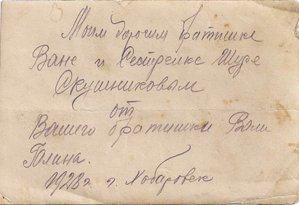 Моим дорогим братишке
Ване и Сестренке Шуре
Скушниковым
от
Вашего братишки Вали
1928 г. г. Хабаровск